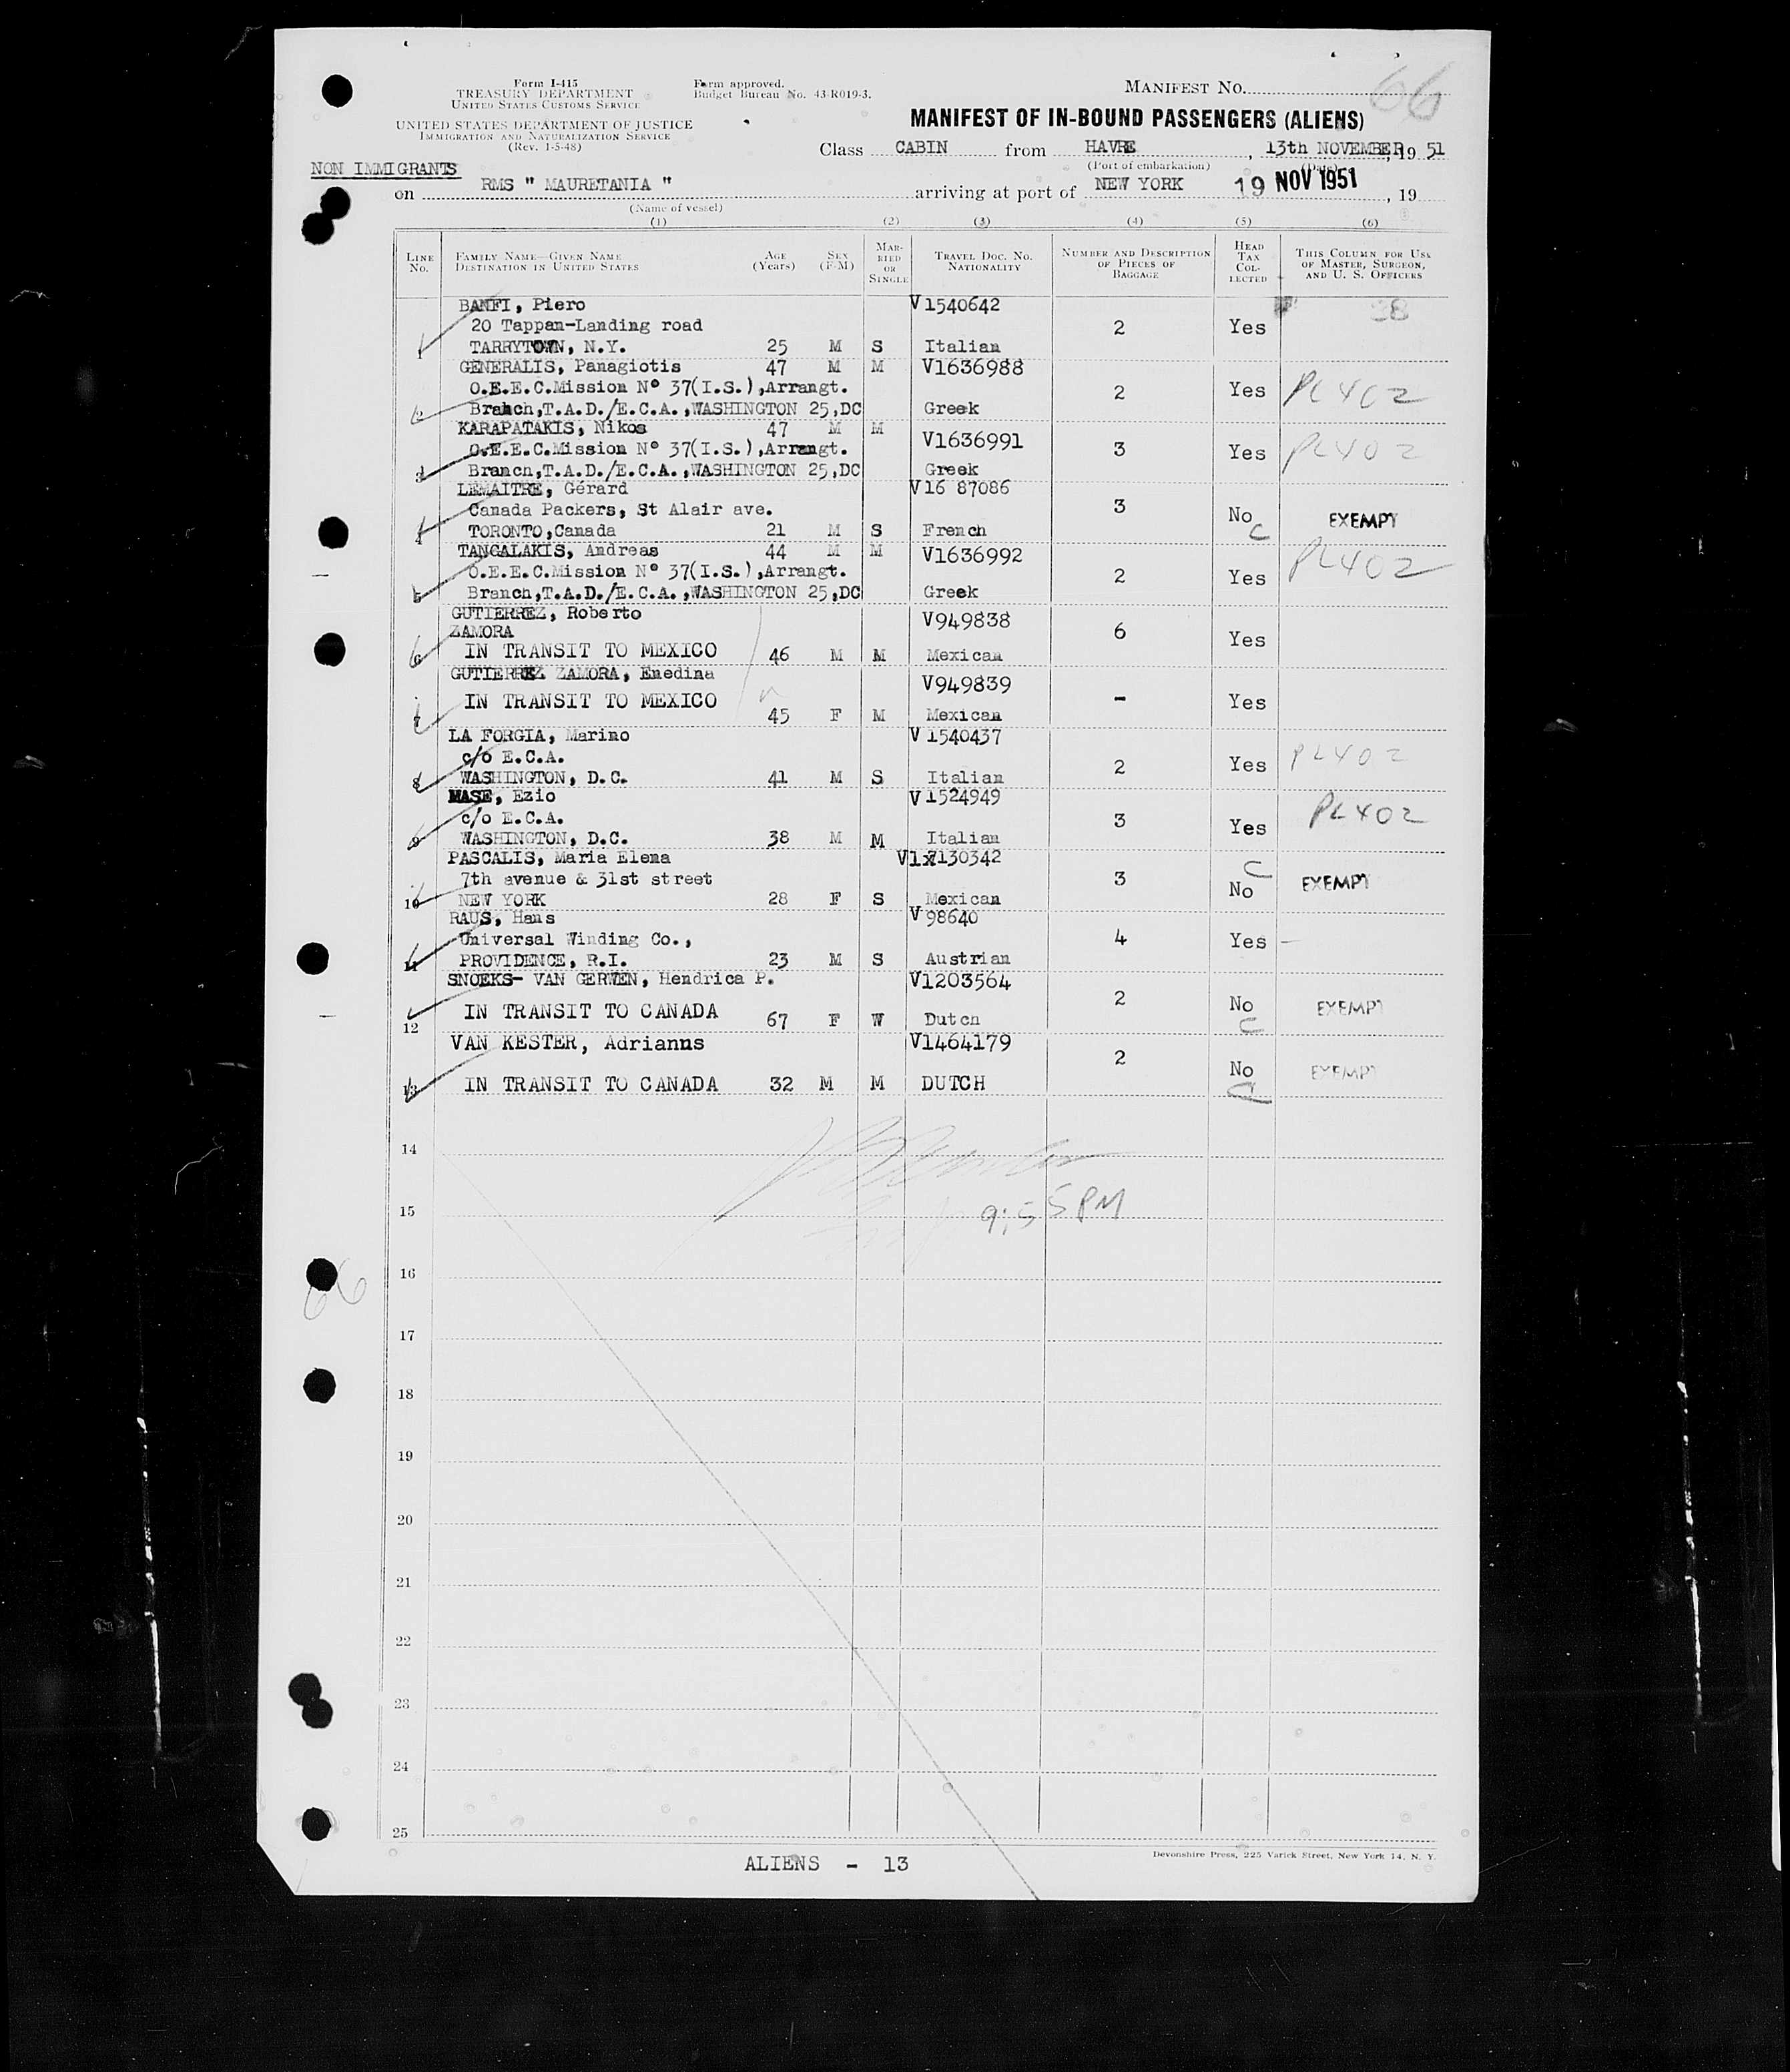 Form I-415
TREASURY DEPARTMENT
UNITED STATES CUSTOMS SERVICE
UNITED STATES DEPARTMENT OF JUSTICE
IMMIGRATION AND NATURALIZATION SERVICE
(Rev. 1-5-48)
Form approved.
Budget Bureau No. 43-R019-3.
MANIFEST No. 66
MANIFEST OF IN-BOUND PASSENGERS (ALIENS)
Class CABIN from HAVRE, 13th NOVEMBER, 19 51
(Port of embarkation) (Date)
NON IMMIGRANTS
on RMS " MAURETANIA " arriving at port of NEW YORK 19 NOV 1951, 19
(Name of vessel)
(1) (2) (3) (4) (5) (6)
LINE No. FAMILY NAME—GIVEN NAME DESTINATION IN UNITED STATES AGE (Years) SEX (F-M) MARRIED OR SINGLE TRAVEL DOC. NO. NATIONALITY NUMBER AND DESCRIPTION OF PIECES OF BAGGAGE HEAD TAX COLLECTED THIS COLUMN FOR USE OF MASTER, SURGEON, AND U. S. OFFICERS
BANFI, Piero V1540642 38
20 Tappan-Landing road 2 Yes
1 TARRYTOWN, N.Y. 25 M S Italian
GENERALIS, Panagiotis 47 M M V1636988
O.E.E.C.Mission Nº 37(I.S.),Arrangt. 2 Yes PL402
2 Branch,T.A.D./E.C.A.,WASHINGTON 25,DC Greek
KARAPATAKIS, Nikos 47 M M V1636991
O.E.E.C.Mission Nº 37(I.S.),Arrangt. 3 Yes PL402
3 Branch,T.A.D./E.C.A.,WASHINGTON 25,DC Greek
LEMAITRE, Gérard V16 87086
Canada Packers, St Alair ave. 3 No C EXEMPT
4 TORONTO,Canada 21 M S French
TANGALAKIS, Andreas 44 M M V1636992 PL402
O.E.E.C.Mission Nº 37(I.S.),Arrangt. 2 Yes
5 Branch,T.A.D./E.C.A.,WASHINGTON 25,DC Greek
GUTIERREZ, Roberto V949838
ZAMORA 6 Yes
6 IN TRANSIT TO MEXICO 46 M M Mexican
GUTIERREZ ZAMORA, Enedina V949839
IN TRANSIT TO MEXICO - Yes
7 45 F M Mexican
LA FORGIA, Marino V1540437
c/o E.C.A. 2 Yes PL402
8 WASHINGTON, D.C. 41 M S Italian
MASE, Ezio V1524949
c/o E.C.A. 3 Yes PL402
9 WASHINGTON, D.C. 38 M M Italian
PASCALIS, Maria Elena V1x7130342 C
7th avenue & 31st street 3 No EXEMPT
10 NEW YORK 28 F S Mexican
RAUS, Hans V98640
Universal Winding Co., 4 Yes –
11 PROVIDENCE, R.I. 23 M S Austrian
SNOEKS- VAN GERWEN, Hendrica P. V1203564
IN TRANSIT TO CANADA 2 No C EXEMPT
12 67 F W Dutch
VAN KESTER, Adrianus V1464179
2 No C EXEMPT
13 IN TRANSIT TO CANADA 32 M M DUTCH
14
15 9:55 PM
16
66
17
18
19
20
21
22
23
24
25
ALIENS - 13
Devonshire Press, 225 Varick Street, New York 14, N. Y.